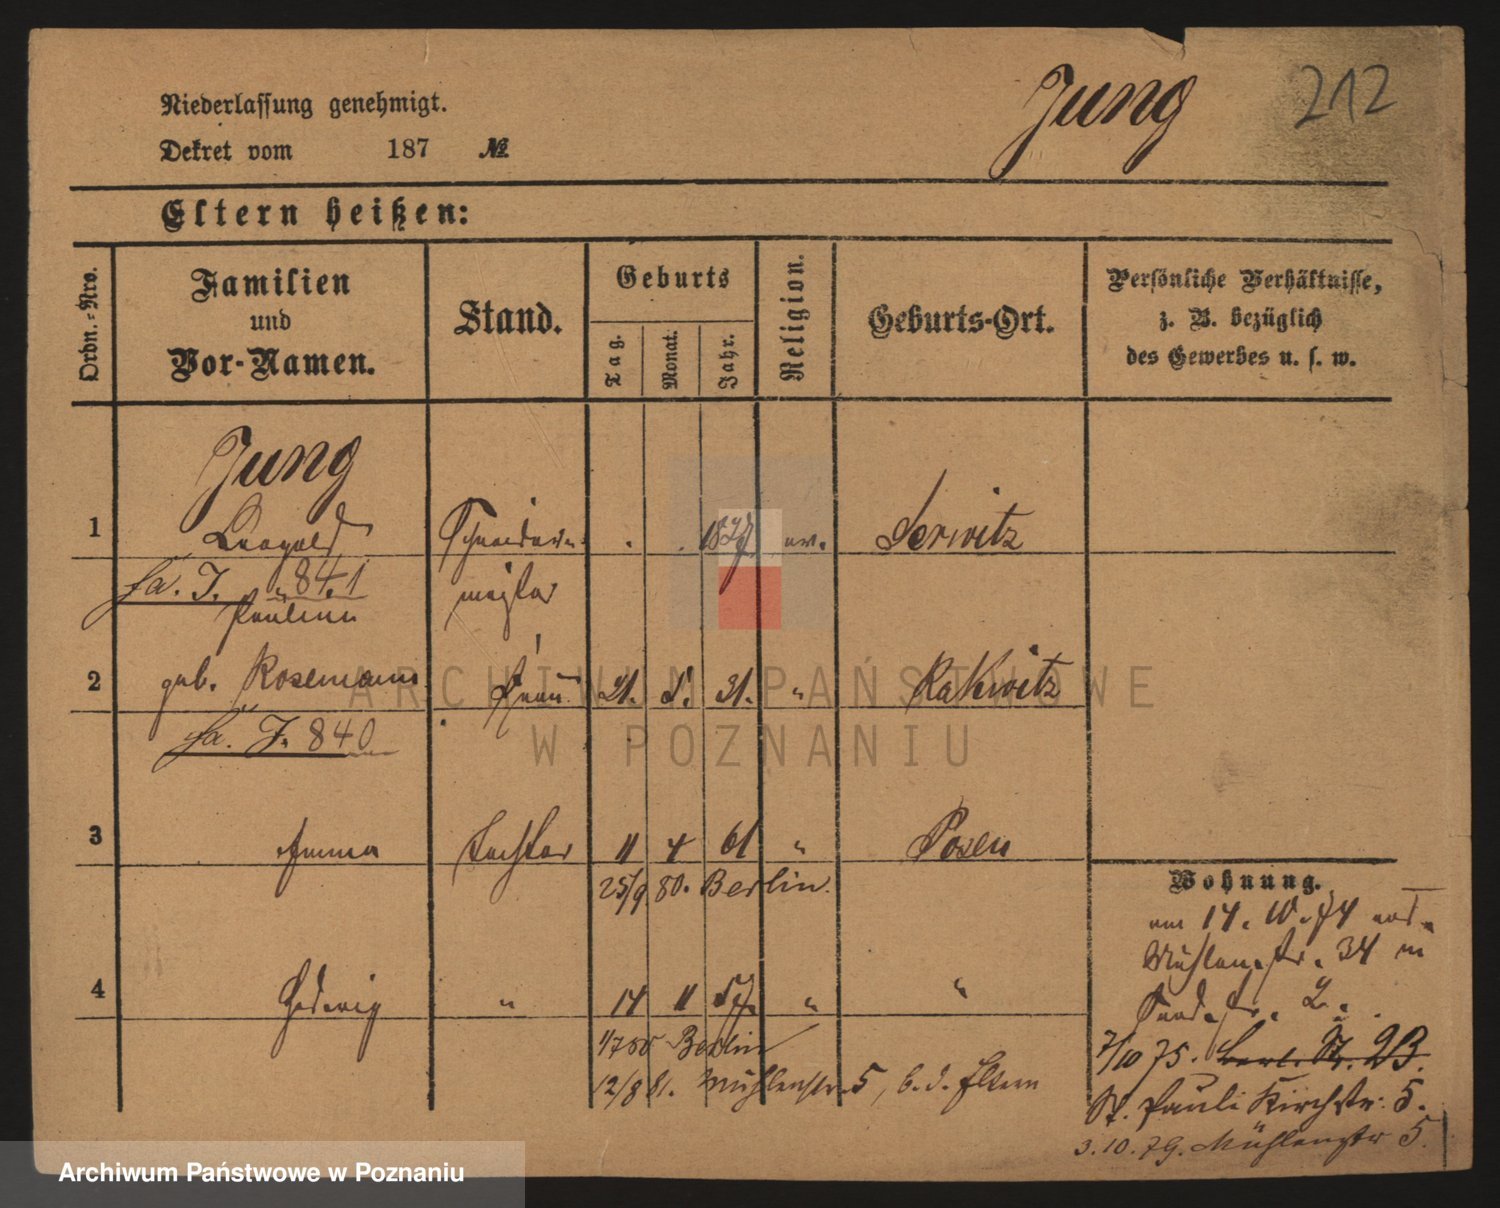 Jung 212
Niederlassung genehmigt.
Dekret vom 187 №
Eltern heißen:
Ordn.-Nro.
Familien
und
Vor-Namen.
Stand.
Geburts
Tag.
Monat.
Jahr.
Religion.
Geburts-Ort.
Persönliche Verhältnisse,
z. B. bezüglich
des Gewerbes u. s. w.
Jung
1 Leopold Schneider- 1827 ev. Serwitz
fa. J. 841 meister
Pauline
2 geb. Rosemann Frau 21. 5. 31. " Rakwitz
fa. J. 840
3 Emma Tochter 11 4 61 " Posen
25/9 80. Berlin.
4 Hedwig " 14 11 57. " "
1/7 80 Berlin
12/8 81. Mühlenstr. 5, b. d. Eltern
Wohnung.
am 14. 10. 74 von
Mühlenstr. 34 n
2.
7/10 75. Str. 23.
St. Pauli Kirchstr. 5.
3. 10. 79. Mühlenstr 5.
ARCHIWUM PAŃSTWOWE
W POZNANIU
Archiwum Państwowe w Poznaniu